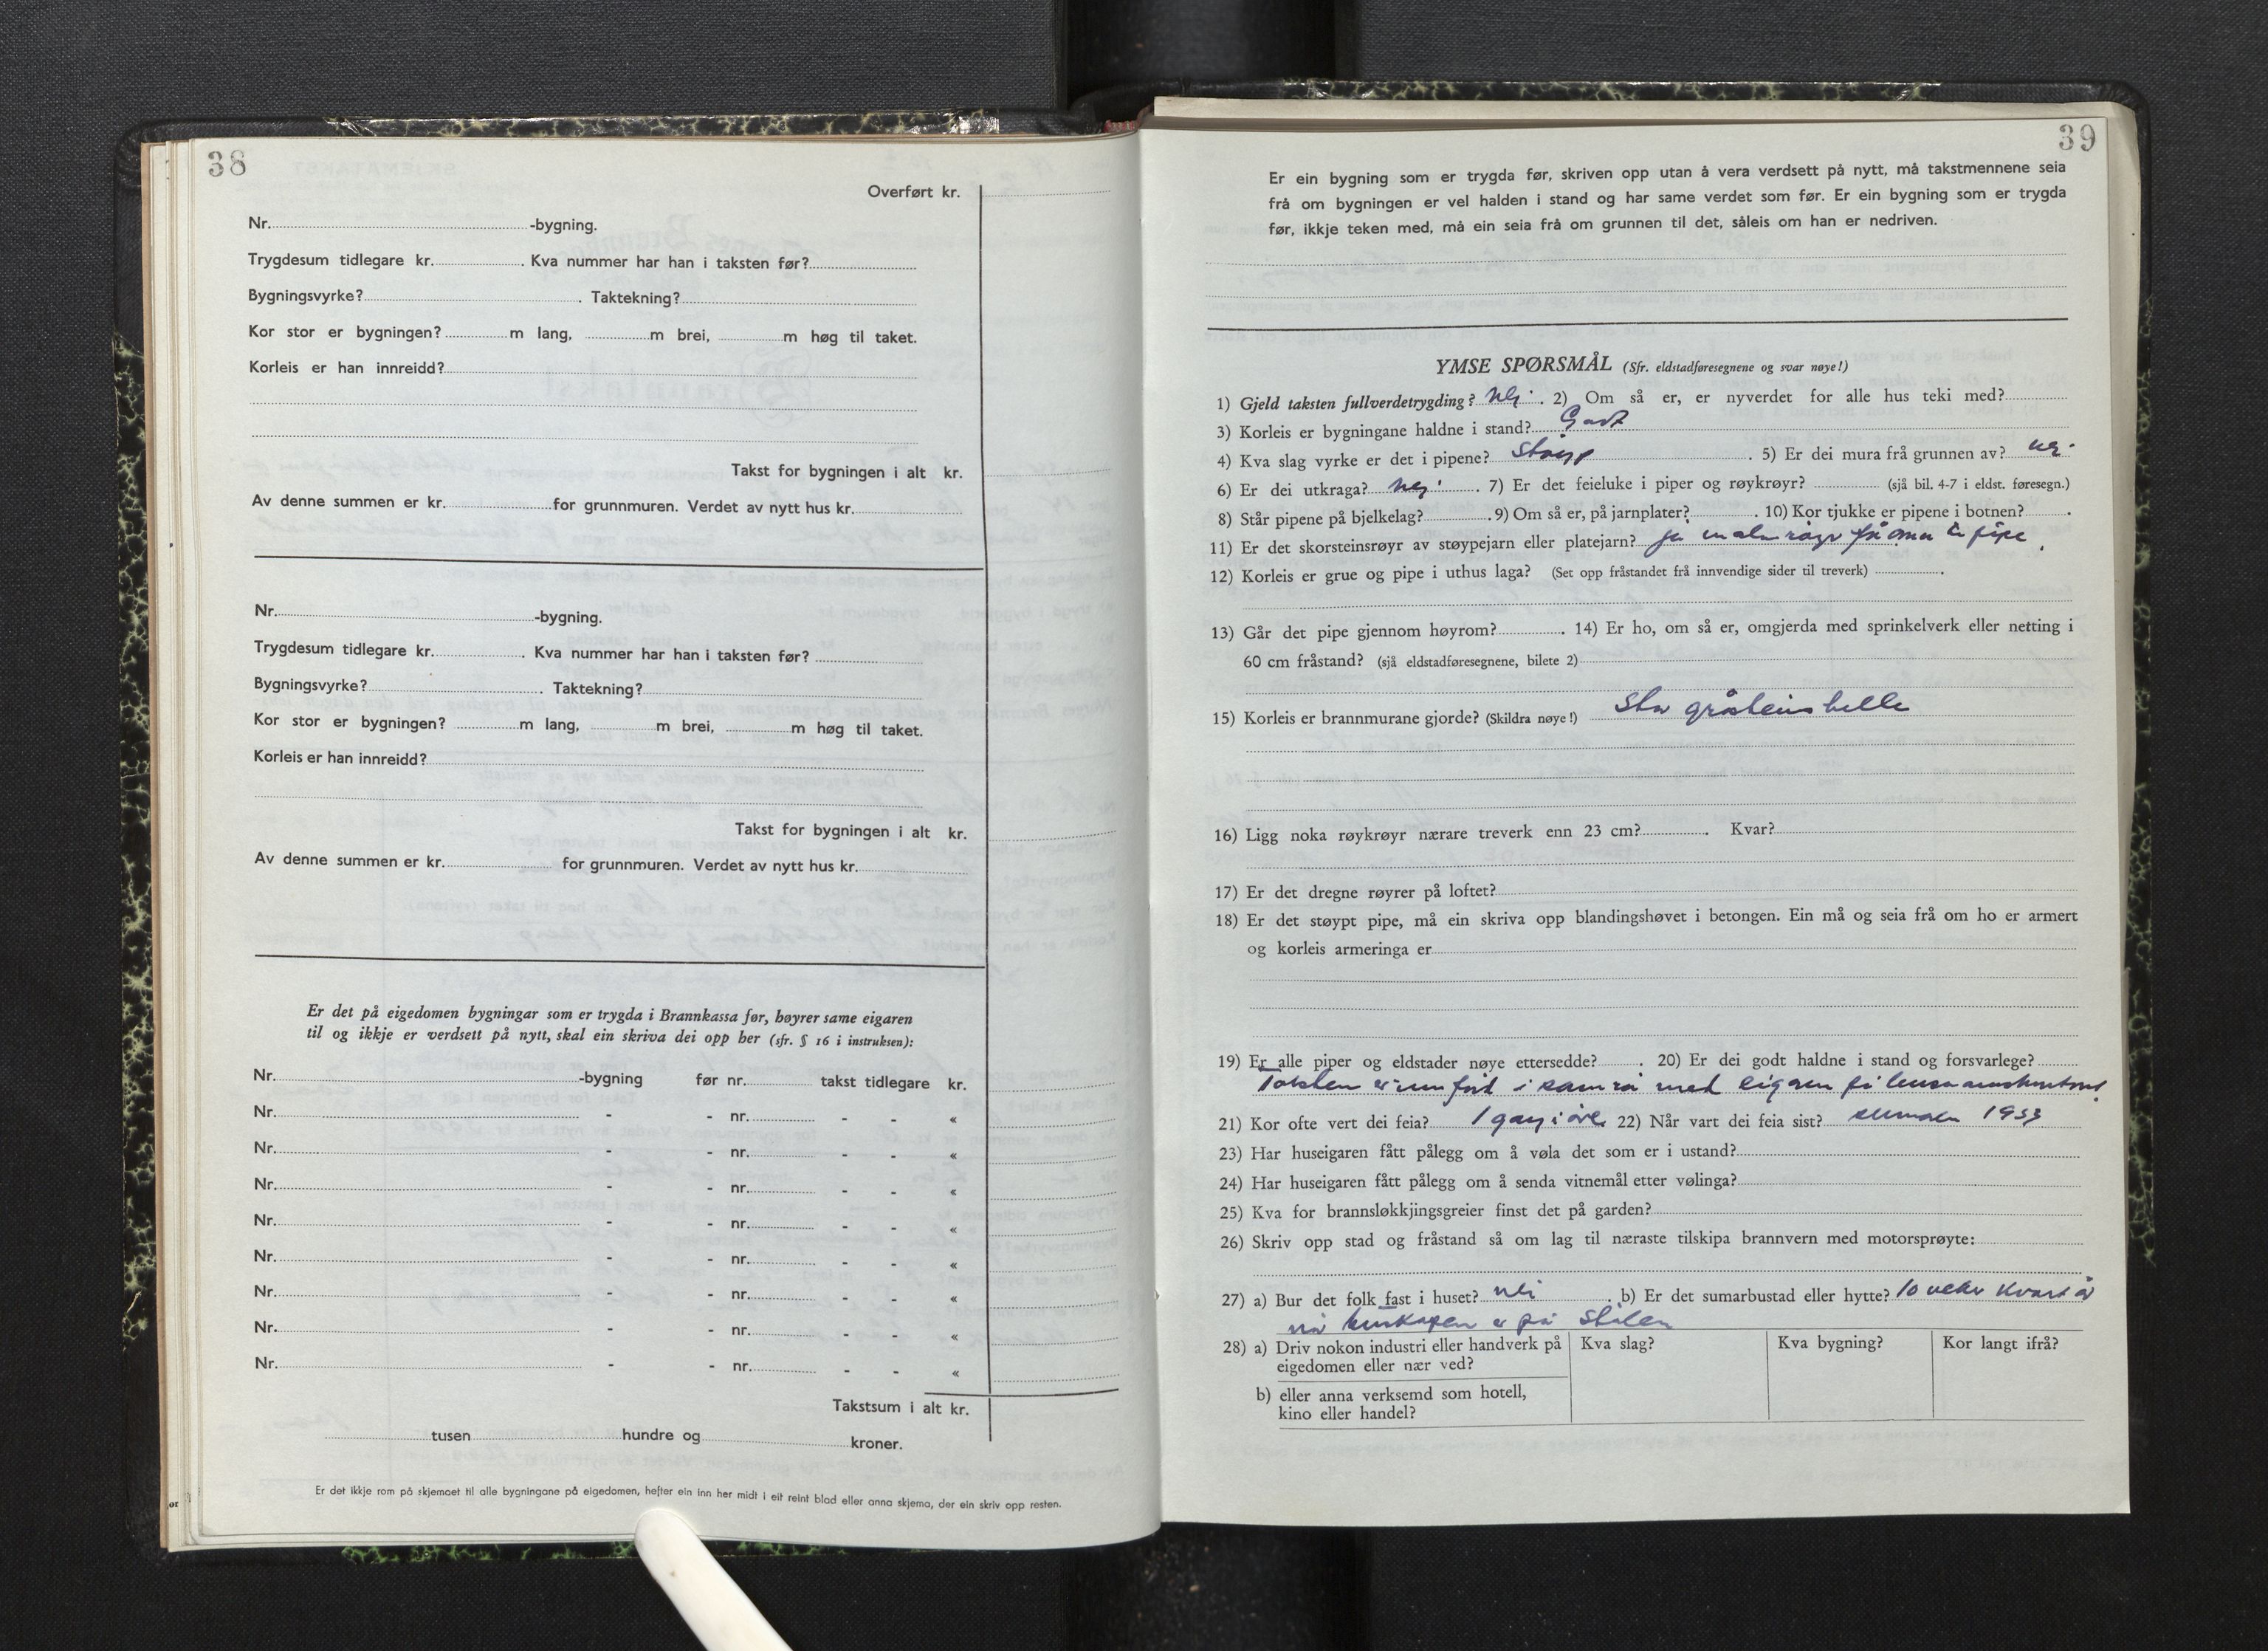 38
Overført kr.
Nr. -bygning.
Trygdesum tidlegare kr. . Kva nummer har han i taksten før?
Bygningsvyrke? . Taktekning?
Kor stor er bygningen? m lang, m brei, m høg til taket.
Korleis er han innreidd?
Takst for bygningen i alt kr.
Av denne summen er kr. for grunnmuren. Verdet av nytt hus kr.
Nr. -bygning.
Trygdesum tidlegare kr. . Kva nummer har han i taksten før?
Bygningsvyrke? . Taktekning?
Kor stor er bygningen? m lang, m brei, m høg til taket.
Korleis er han innreidd?
Takst for bygningen i alt kr.
Av denne summen er kr. for grunnmuren. Verdet av nytt hus kr.
Er det på eigedomen bygningar som er trygda i Brannkassa før, høyrer same eigaren
til og ikkje er verdsett på nytt, skal ein skriva dei opp her (sfr. § 16 i instruksen):
Nr. -bygning før nr. takst tidlegare kr.
Nr. - - nr. - - «
Nr. - - nr. - - «
Nr. - - nr. - - «
Nr. - - nr. - - «
Nr. - - nr. - - «
Nr. - - nr. - - «
Nr. - - nr. - - «
Nr. - - nr. - - «
Takstsum i alt kr.
tusen hundre og kroner.
Er det ikkje rom på skjemaet til alle bygningane på eigedomen, hefter ein inn her midt i eit reint blad eller anna skjema, der ein skriv opp resten.
39
Er ein bygning som er trygda før, skriven opp utan å vera verdsett på nytt, må takstmennene seia
frå om bygningen er vel halden i stand og har same verdet som før. Er ein bygning som er trygda
før, ikkje teken med, må ein seia frå om grunnen til det, såleis om han er nedriven.
YMSE SPØRSMÅL (Sfr. eldstadføresegnene og svar nøye!)
1) Gjeld taksten fullverdetrygding? Nei . 2) Om så er, er nyverdet for alle hus teki med?
3) Korleis er bygningane haldne i stand? Godt
4) Kva slag vyrke er det i pipene? Støyp . 5) Er dei mura frå grunnen av? nei
6) Er dei utkraga? Nei . 7) Er det feieluke i piper og røykrøyr? (sjå bil. 4-7 i eldst. føresegn.)
8) Står pipene på bjelkelag? . 9) Om så er, på jarnplater? . 10) Kor tjukke er pipene i botnen? .
11) Er det skorsteinsrøyr av støypejarn eller platejarn? Ja malmrøyr frå omn til pipe .
12) Korleis er grue og pipe i uthus laga? (Set opp fråstandet frå innvendige sider til treverk) .
13) Går det pipe gjennom høyrom? . 14) Er ho, om så er, omgjerda med sprinkelverk eller netting i
60 cm fråstand? (sjå eldstadføresegnene, bilete 2)
15) Korleis er brannmurane gjorde? (Skildra nøye!) Stor gråsteinshelle
16) Ligg noka røykrøyr nærare treverk enn 23 cm? . Kvar?
17) Er det dregne røyrer på loftet?
18) Er det støypt pipe, må ein skriva opp blandingshøvet i betongen. Ein må og seia frå om ho er armert
og korleis armeringa er
19) Er alle piper og eldstader nøye ettersedde? . 20) Er dei godt haldne i stand og forsvarlege?
Taksten er innført i samråd med eigaren på lensmannskontoret
21) Kor ofte vert dei feia? 1 gang i året 22) Når vart dei feia sist? summaren 1953
23) Har huseigaren fått pålegg om å vøla det som er i ustand?
24) Har huseigaren fått pålegg om å senda vitnemål etter vølinga?
25) Kva for brannsløkkjingsgreier finst det på garden?
26) Skriv opp stad og fråstand så om lag til næraste tilskipa brannvern med motorsprøyte:
27) a) Bur det folk fast i huset? nei . b) Er det sumarbustad eller hytte? 10 veker kvart år
når buskapen er på stølen
28) a) Driv nokon industri eller handverk på eigedomen eller nær ved? Kva slag? Kva bygning? Kor langt ifrå?
b) eller anna verksemd som hotell,
kino eller handel?